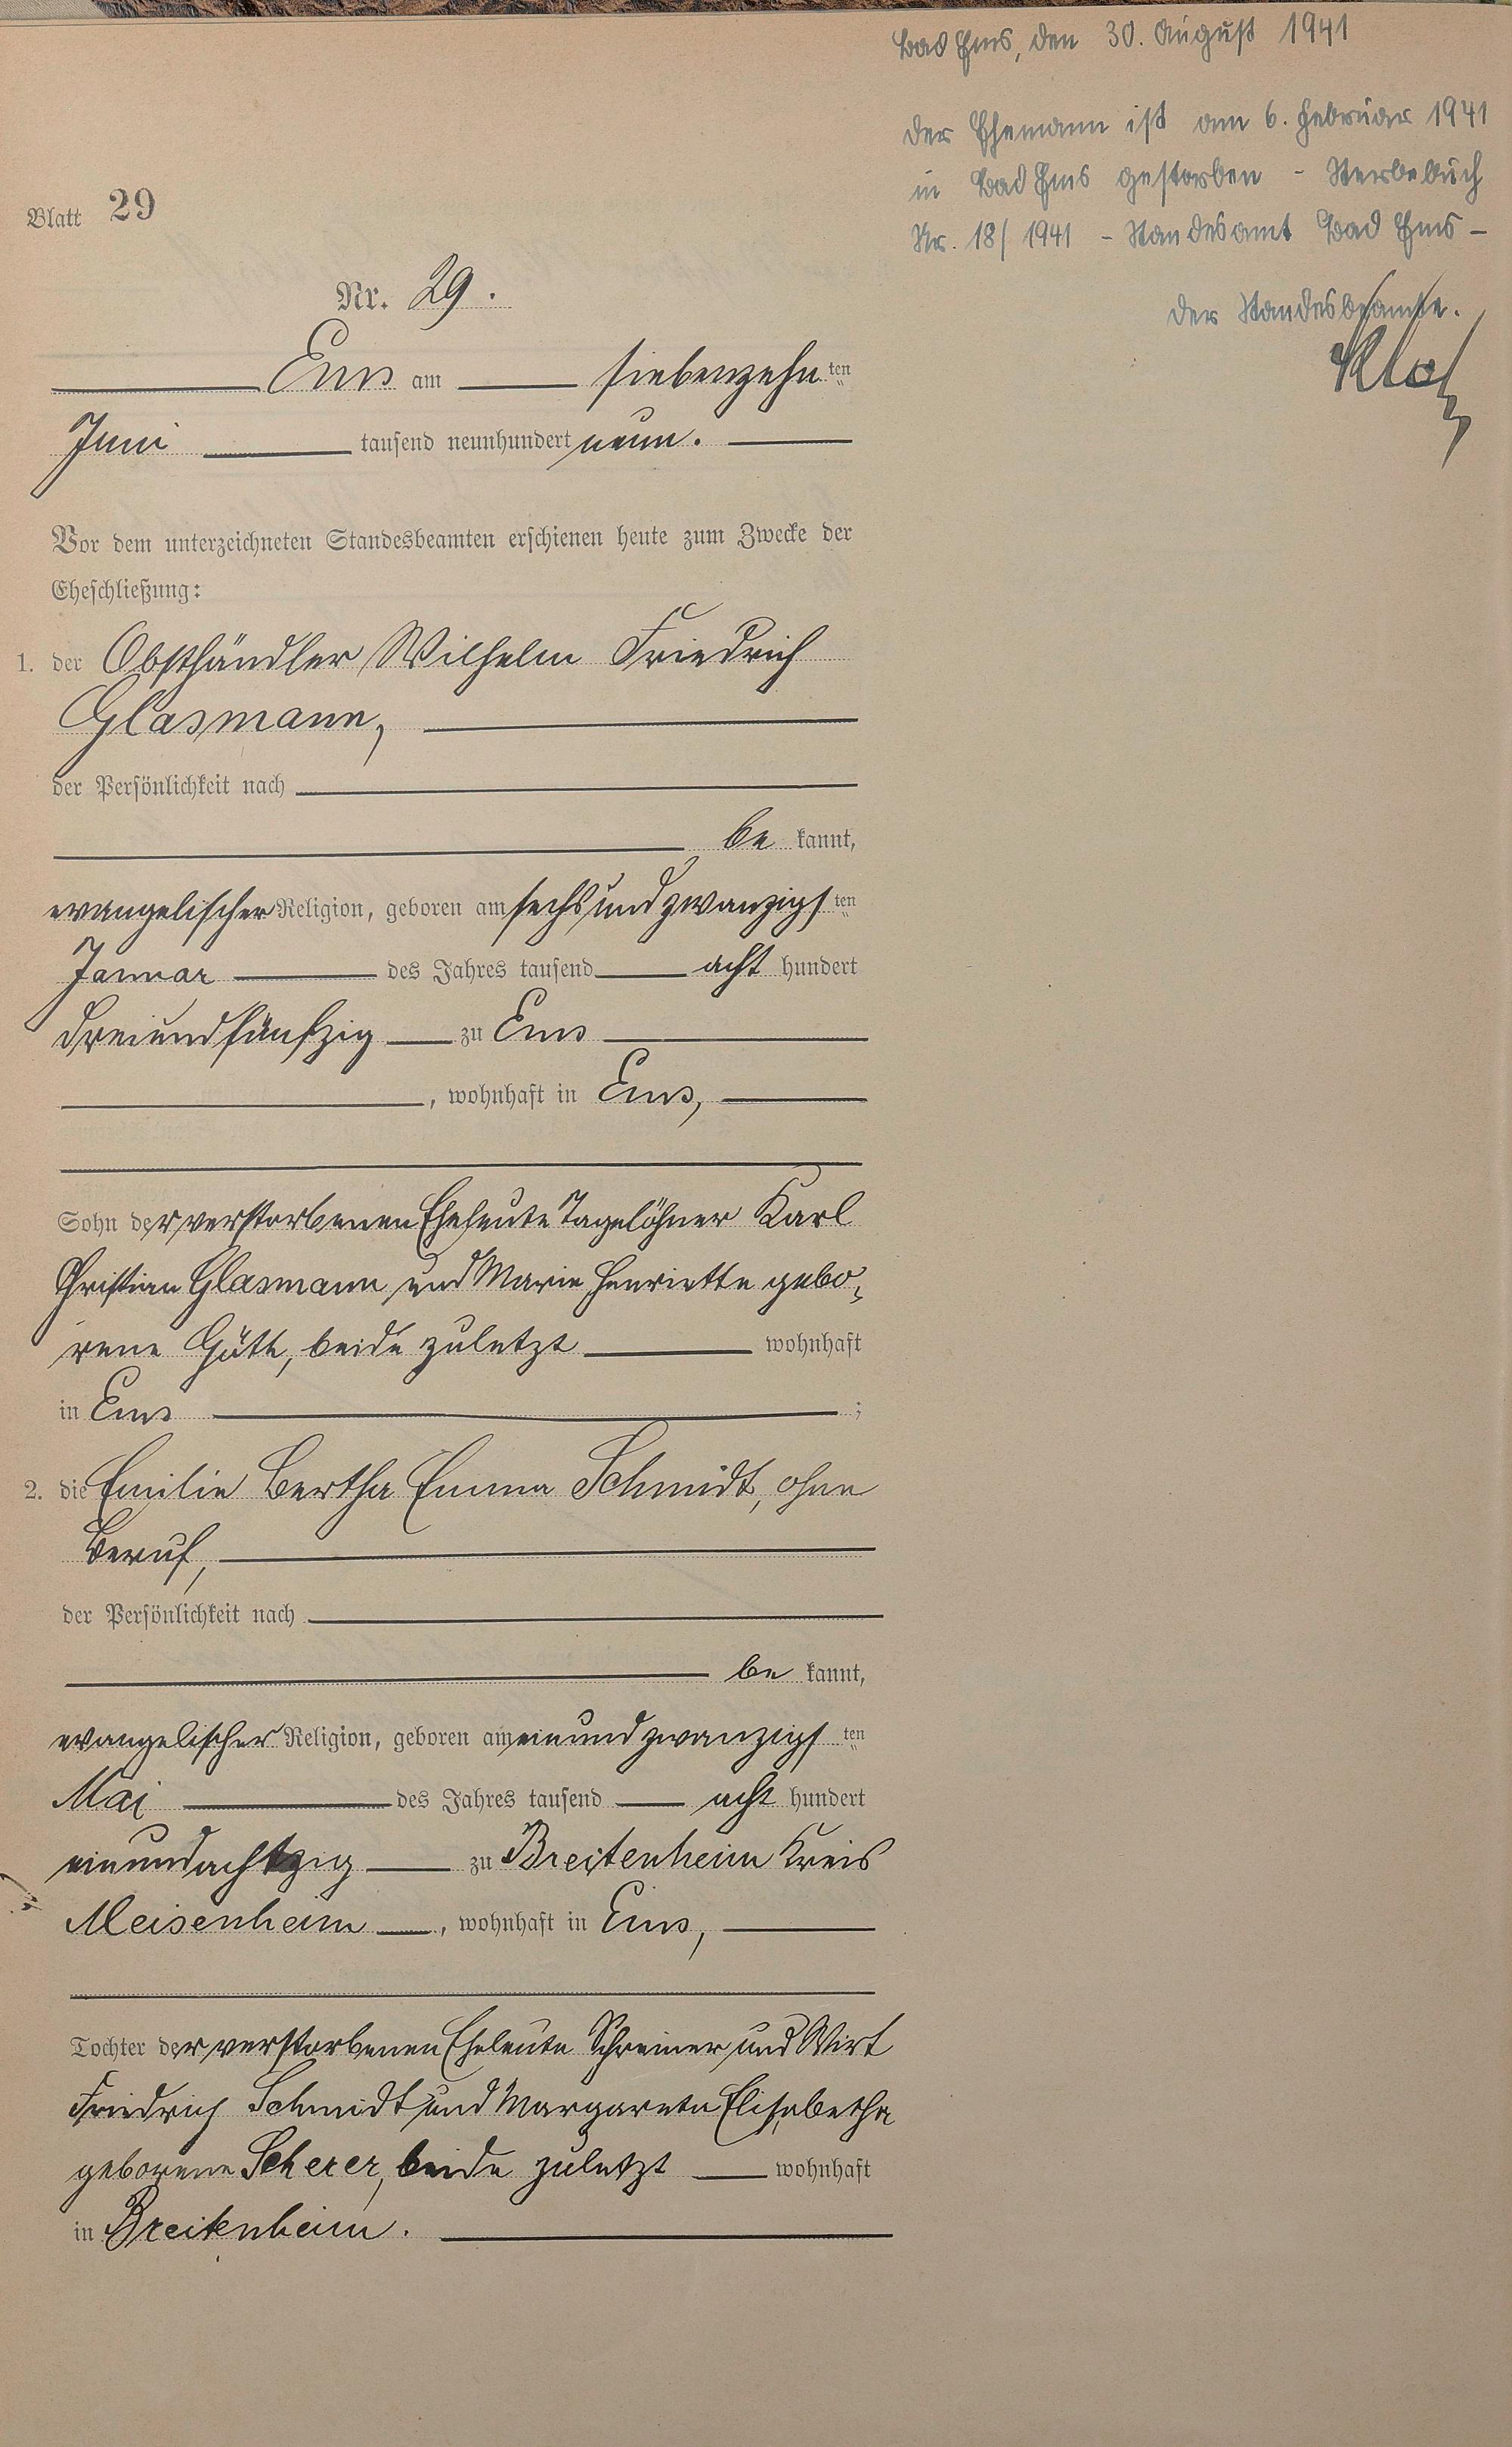 Bad Ems, den 30. August 1941
Der Ehemann ist am 6. Februar 1941
in Bad Ems gestorben - Sterbebuch
Nr. 18/1941 - Standesamt Bad Ems -
Der Standesbeamte.
Blatt 29
Nr. 29.
Ems am siebenzehnten
Juni tausend neunhundert neun.
Vor dem unterzeichneten Standesbeamten erschienen heute zum Zwecke der
Eheschließung:
1. der Obsthändler Wilhelm Friedrich
Glasmann,
der Persönlichkeit nach
be kannt,
evangelischer Religion, geboren am sechsundzwanzigsten
Januar des Jahres tausend acht hundert
dreiundfünfzig zu Ems
, wohnhaft in Ems,
Sohn der verstorbenen Eheleute Tagelöhner Karl
Christian Glasmann und Marie Henriette gebo-
rene Güth, beide zuletzt wohnhaft
in Ems ;
2. die Emilie Bertha Emma Schmidt, ohne
Beruf,
der Persönlichkeit nach
be kannt,
evangelischer Religion, geboren am einundzwanzigsten
Mai des Jahres tausend acht hundert
einundachtzig zu Breitenheim Kreis
Meisenheim, wohnhaft in Ems,
Tochter der verstorbenen Eheleute Schreiner und Wirt
Friedrich Schmidt und Margareta Elisabetha
geborene Scherer, beide zuletzt wohnhaft
in Breitenheim.